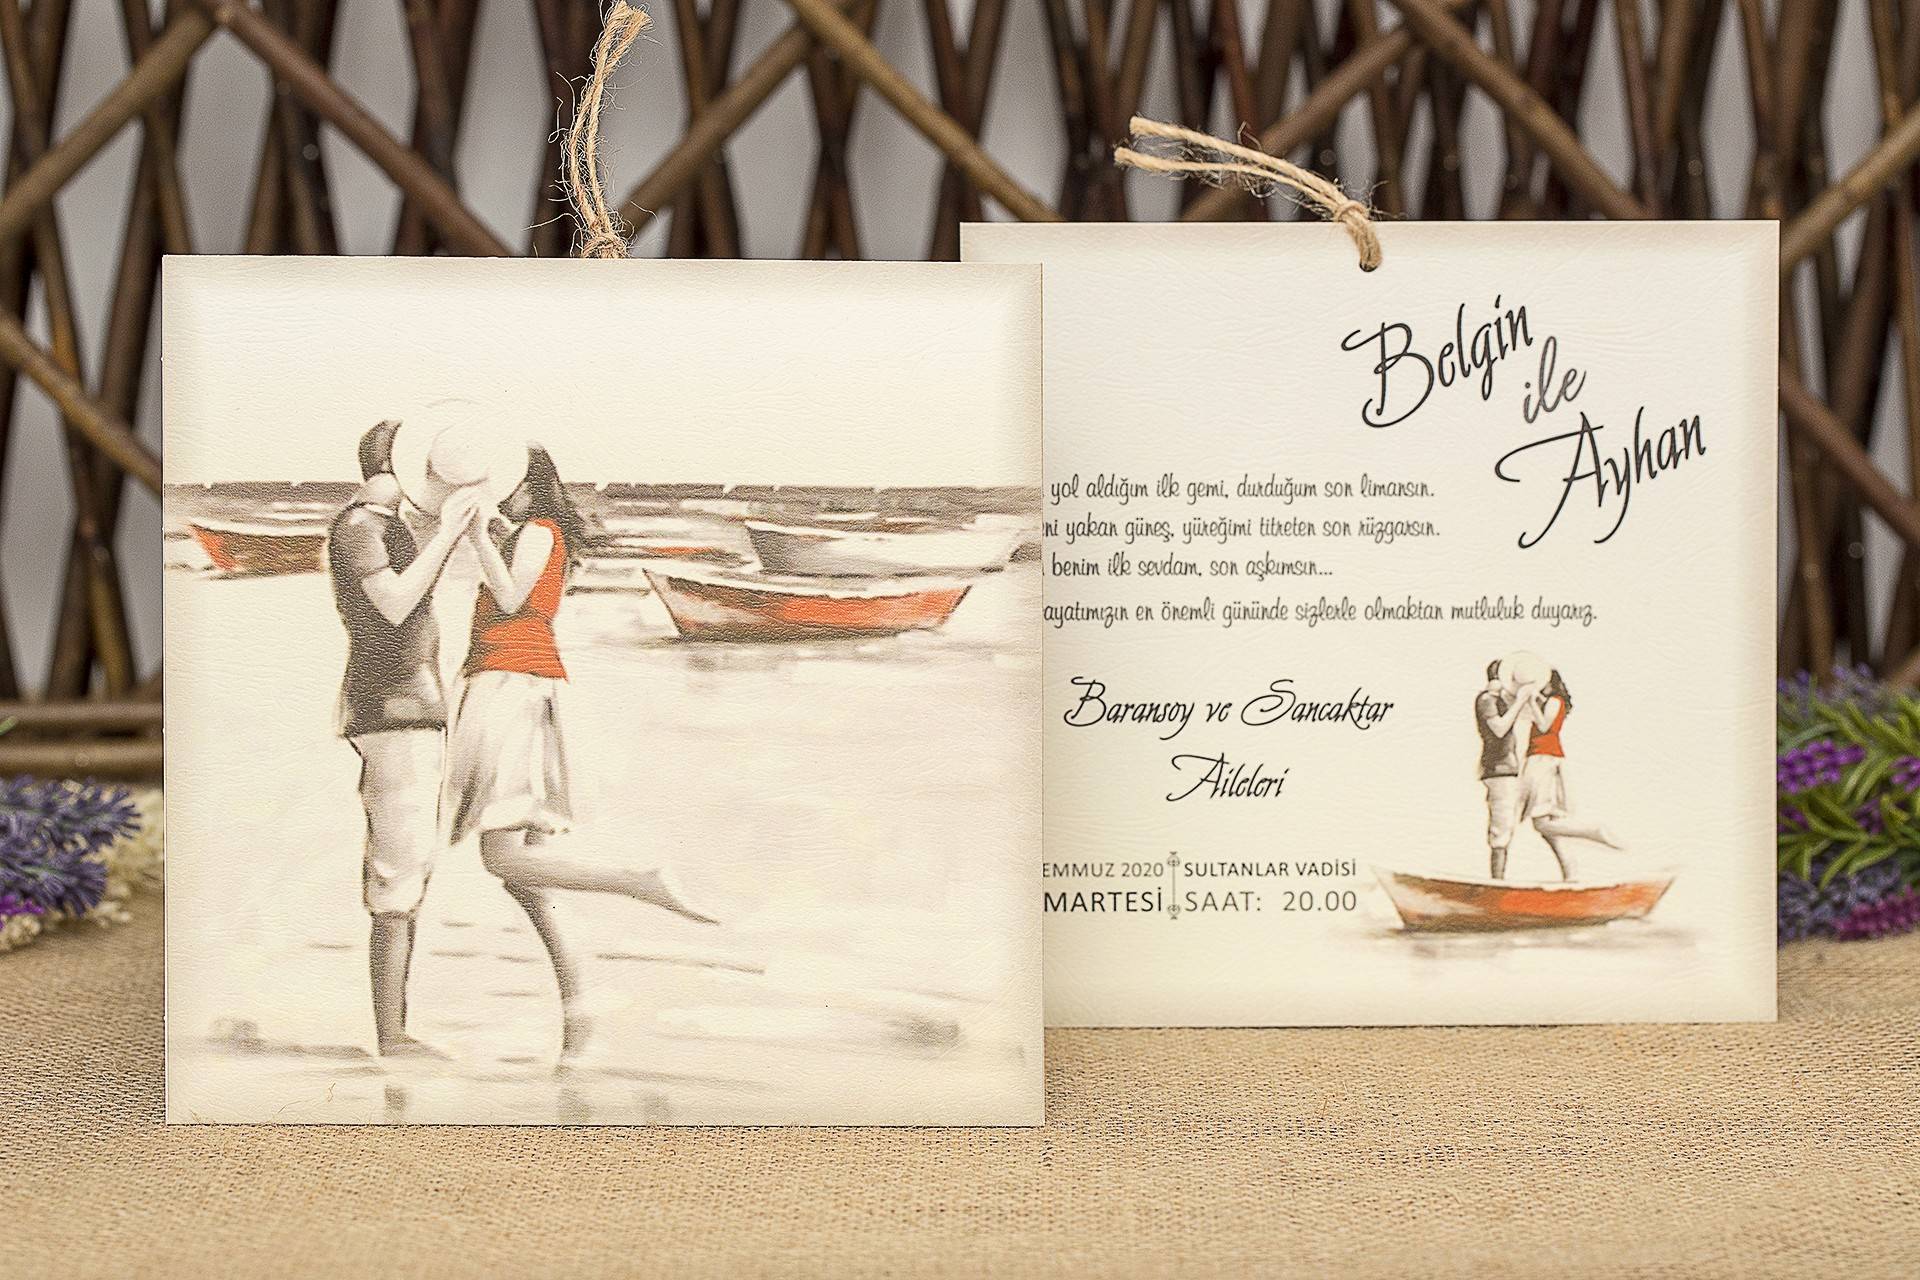 Belgin
ile
Ayhan
yol aldığım ilk gemi, durduğum son limansın.
yakan güneş, yüreğimi titreten son rüzgarsın.
benim ilk sevdam, son aşkımsın...
en önemli gününde sizlerle olmaktan mutluluk duyarız.
Baransoy ve Sancaktar
Aileleri
EMMUZ 2020 SULTANLAR VADİSİ
MARTESİ SAAT: 20.00